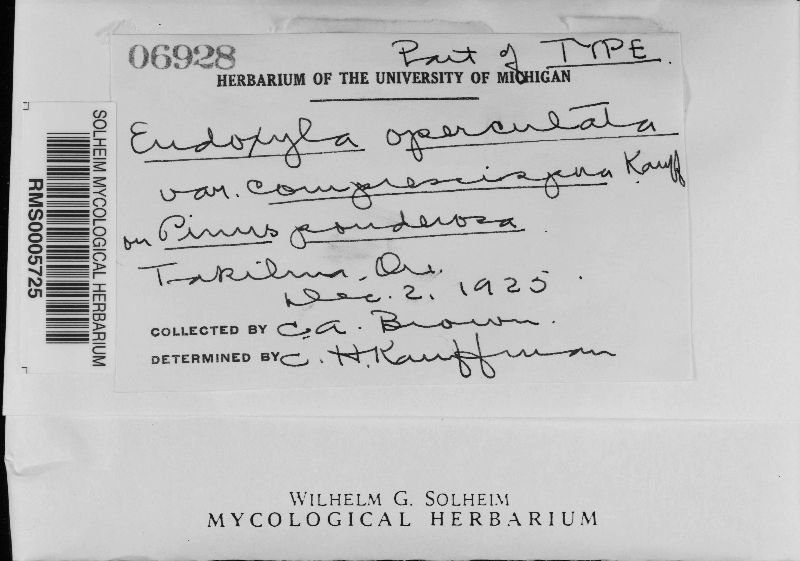 06928 Part of TYPE.
HERBARIUM OF THE UNIVERSITY OF MICHIGAN
Eudoxyla operculata
var. compressispora Kauff
on Pinus ponderosa
Takilma, Or.
Dec. 2, 1925.
COLLECTED BY C.A. Brown.
DETERMINED BY C. H. Kauffman
SOLHEIM MYCOLOGICAL HERBARIUM
RMS0005725
WILHELM G. SOLHEIM
MYCOLOGICAL HERBARIUM